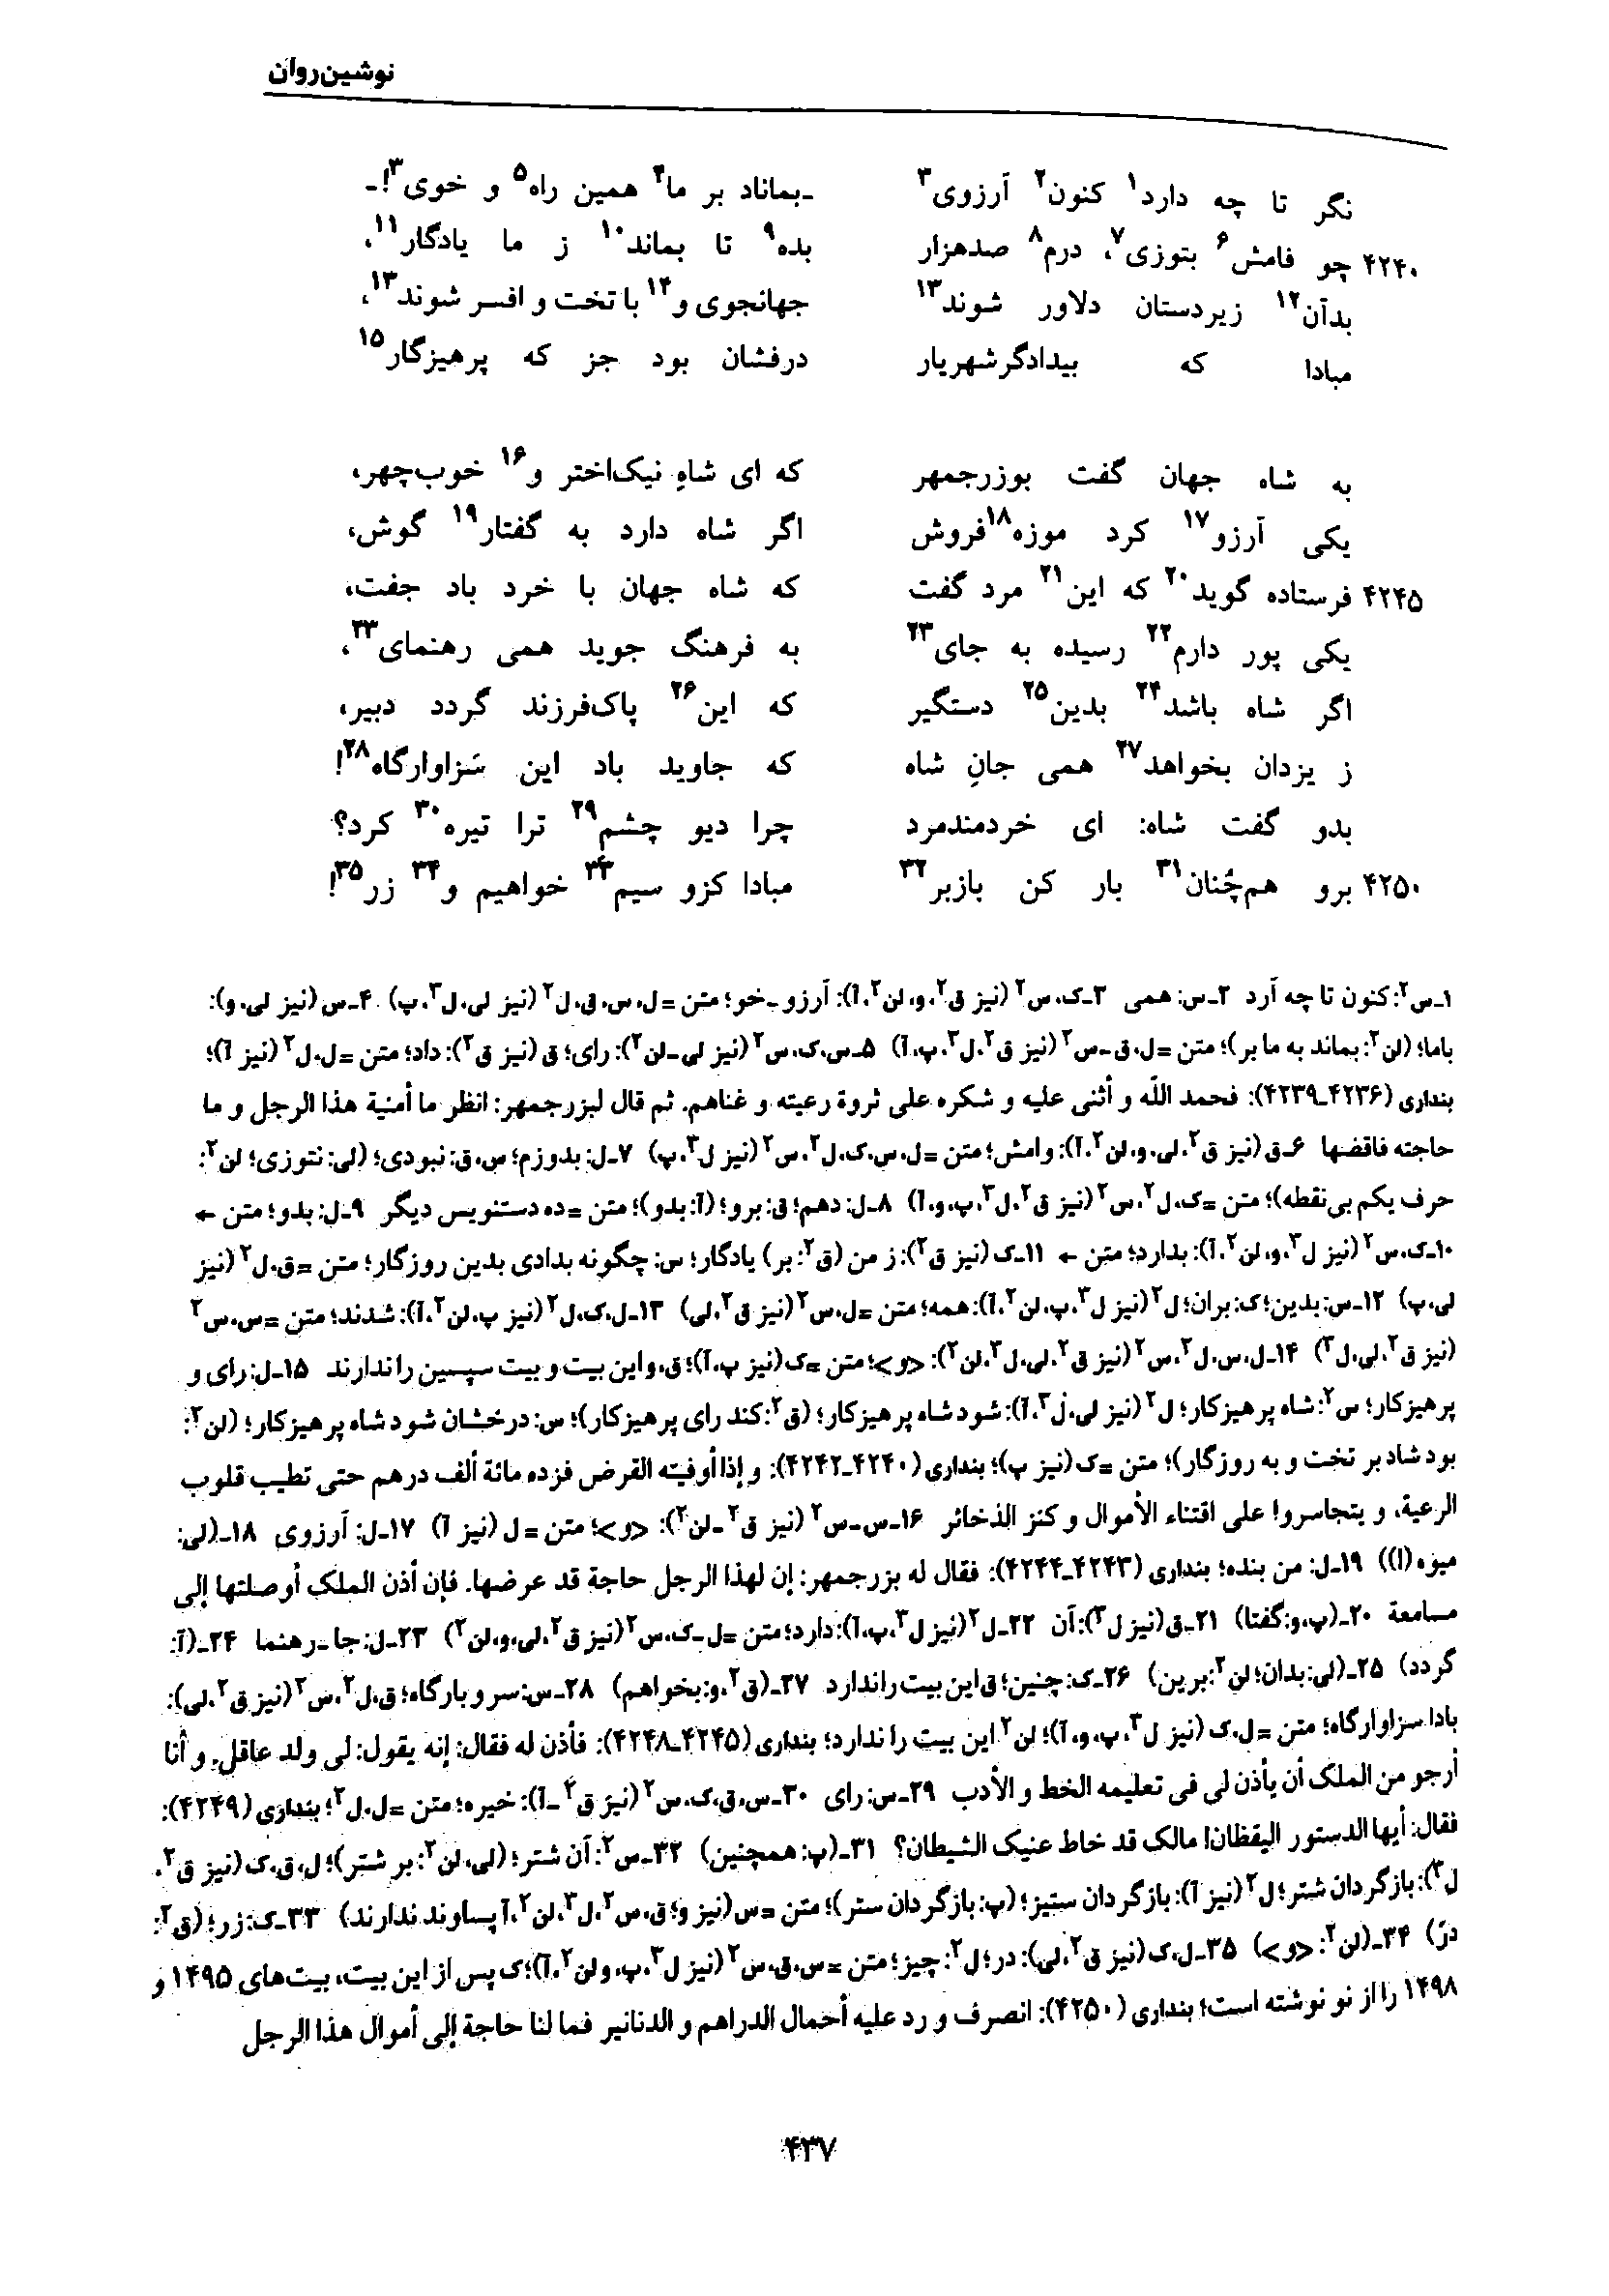 نوشین‌روان
نگر تا چه دارد۱ کنون۲ آرزوی۳ ـ‌بماناد بر ما۴ همین راه۵ و خوی۳!ـ
۴۲۴۰ چو فامش۶ بتوزی۷، درم۸ صدهزار بده۹ تا بماند۱۰ ز ما یادگار۱۱،
بدآن۱۲ زیردستان دلاور شوند۱۳ جهانجوی و۱۴ با تخت و افسر شوند۱۳،
مبادا که بیدادگر شهریار درفشان بود جز که پرهیزگار۱۵
به شاه جهان گفت بوزرجمهر که ای شاهِ نیک‌اختر و۱۶ خوب‌چهر،
یکی آرزو۱۷ کرد موزه۱۸فروش اگر شاه دارد به گفتار۱۹ گوش،
۴۲۴۵ فرستاده گوید۲۰ که این۲۱ مرد گفت که شاه جهان با خرد باد جفت،
یکی پور دارم۲۲ رسیده به جای۲۳ به فرهنگ جوید همی رهنمای۲۳،
اگر شاه باشد۲۴ بدین۲۵ دستگیر که این۲۶ پاک‌فرزند گردد دبیر،
ز یزدان بخواهد۲۷ همی جانِ شاه که جاوید باد این سَزاوارگاه۲۸!
بدو گفت شاه: ای خردمندمرد چرا دیو چشم۲۹ ترا تیره۳۰ کرد؟
۴۲۵۰ برو هم‌چُنان۳۱ بار کن بازبر۳۲ مبادا کزو سیم۳۳ خواهیم و۳۴ زر۳۵!
۱ـ‌س۲: کنون تا چه آرد ۲ـ‌س: همی ۳ـ‌ک، س۲ (نیز ق۲، و، لن۲، آ): آرزو ـ خو؛ متن =ل، س، ق، ل۲ (نیز لی، ل۳، پ) ۴ـ‌س (نیز لی، و):
باما؛ (لن۲: بماند به ما بر)؛ متن =ل، ق-س۲ (نیز ق۲، ل۳، پ، آ) ۵ـ‌س، ک، س۲ (نیز لی-لن۲): رای؛ ق (نیز ق۲): داد؛ متن =ل، ل۲ (نیز آ)؛
بنداری (۴۲۳۶ـ۴۲۳۹): فحمد الله و أثنی علیه و شکره علی ثروة رعیته و غناهم. ثم قال لبزرجمهر: انظر ما أمنیة هذا الرجل و ما
حاجته فاقضها ۶ـ‌ق (نیز ق۲، لی، و، لن۲، آ): وامش؛ متن =ل، س، ک، ل۲، س۲ (نیز ل۳، پ) ۷ـ‌ل: بدوزم؛ س، ق: نبودی؛ (لی: نتوزی؛ لن۲:
حرف یکم بی‌نقطه)؛ متن =ک، ل۲، س۲ (نیز ق۲، ل۳، پ، و، آ) ۸ـ‌ل: دهم؛ ق: برو؛ (آ: بدو)؛ متن =ده دستنویس دیگر ۹ـ‌ل: بدو؛ متن ←
۱۰ـ‌ک، س۲ (نیز ل۳، و، لن۲، آ): بدارد؛ متن ← ۱۱ـ‌ک (نیز ق۲): ز من (ق۲: بر) یادگار؛ س: چگونه بدادی بدین روزگار؛ متن =ق، ل۲ (نیز
لی، پ) ۱۲ـ‌س: بدین؛ ک: بران؛ ل۲ (نیز ل۳، پ، لن۲، آ): همه؛ متن =ل، س۲ (نیز ق۲، لی) ۱۳ـ‌ل، ک، ل۲ (نیز پ، لن۲، آ): شدند؛ متن =س، س۲
(نیز ق۲، لی، ل۳) ۱۴ـ‌ل، س، ل۲، س۲ (نیز ق۲، لی، ل۳، لن۲): <و>؛ متن =ک (نیز پ، آ)؛ ق، و این بیت و بیت سپسین را ندارند ۱۵ـ‌ل: رای و
پرهیزکار؛ س۲: شاه پرهیزکار؛ ل۲ (نیز لی، ل۳، آ): شود شاه پرهیزکار؛ (ق۲: کند رای پرهیزکار)؛ س: درخشان شود شاه پرهیزکار؛ (لن۲:
بود شاد بر تخت و به روزگار)؛ متن =ک (نیز پ)؛ بنداری (۴۲۴۰ـ۴۲۴۲): و إذا أوفیته القرض فزده مائة ألف درهم حتی تطیب قلوب
الرعیة، و یتجاسروا علی اقتناء الأموال و کنز الذخائر ۱۶ـ‌س-س۲ (نیز ق۲-لن۲): <و>؛ متن =ل (نیز آ) ۱۷ـ‌ل: آرزوی ۱۸ـ(لی:
میزه (!)) ۱۹ـ‌ل: من بنده؛ بنداری (۴۲۴۳ـ۴۲۴۴): فقال له بزرجمهر: إن لهذا الرجل حاجة قد عرضها. فإن أذن الملک أوصلتها إلی
مسامعة ۲۰ـ(پ، و: گفتا) ۲۱ـ‌ق (نیز ل۳): آن ۲۲ـ‌ل۲ (نیز ل۳، پ، آ): دارد؛ متن =ل-ک، س۲ (نیز ق۲، لی، و، لن۲) ۲۳ـ‌ل: جا ـ رهنما ۲۴ـ(آ:
گردد) ۲۵ـ(لی: بدان؛ لن۲: برین) ۲۶ـ‌ک: چنین؛ ق این بیت را ندارد ۲۷ـ(ق۲، و: بخواهم) ۲۸ـ‌س: سر و بارگاه؛ ق، ل۲، س۲ (نیز ق۲، لی):
بادا سزاوارگاه؛ متن =ل، ک (نیز ل۳، پ، و، آ)؛ لن۲ این بیت را ندارد؛ بنداری (۴۲۴۵ـ۴۲۴۸): فأذن له فقال: إنه یقول: لی ولد عاقل، و أنا
أرجو من الملک أن یأذن لی فی تعلیمه الخط و الأدب ۲۹ـ‌س: رای ۳۰ـ‌س، ق، ک، س۲ (نیز ق۲-آ): خیره؛ متن =ل، ل۲؛ بنداری (۴۲۴۹):
فقال: أیها الدستور الیقظان! مالک قد خاط عنیک الشیطان؟ ۳۱ـ(پ: همچنین) ۳۲ـ‌س۲: آن شتر؛ (لی، لن۲: بر شتر)؛ ل، ق، ک (نیز ق۲،
ل۳): بازگردان شتر؛ ل۲ (نیز آ): بازگردان ستیز؛ (پ: بازگردان ستر)؛ متن =س (نیز و؛ ق، س۲، ل۳، لن۲، آ پساوند ندارند) ۳۳ـ‌ک: زر؛ (ق۲:
درّ) ۳۴ـ(لن۲: <و>) ۳۵ـ‌ل، ک (نیز ق۲، لی): در؛ ل۲: چیز؛ متن =س، ق، س۲ (نیز ل۳، پ، و لن۲، آ)؛ ک پس از این بیت، بیت‌های ۱۴۹۵ و
۱۴۹۸ را از نو نوشته است؛ بنداری (۴۲۵۰): انصرف و رد علیه أحمال الدراهم و الدنانیر فما لنا حاجة إلی أموال هذا الرجل
۴۳۷